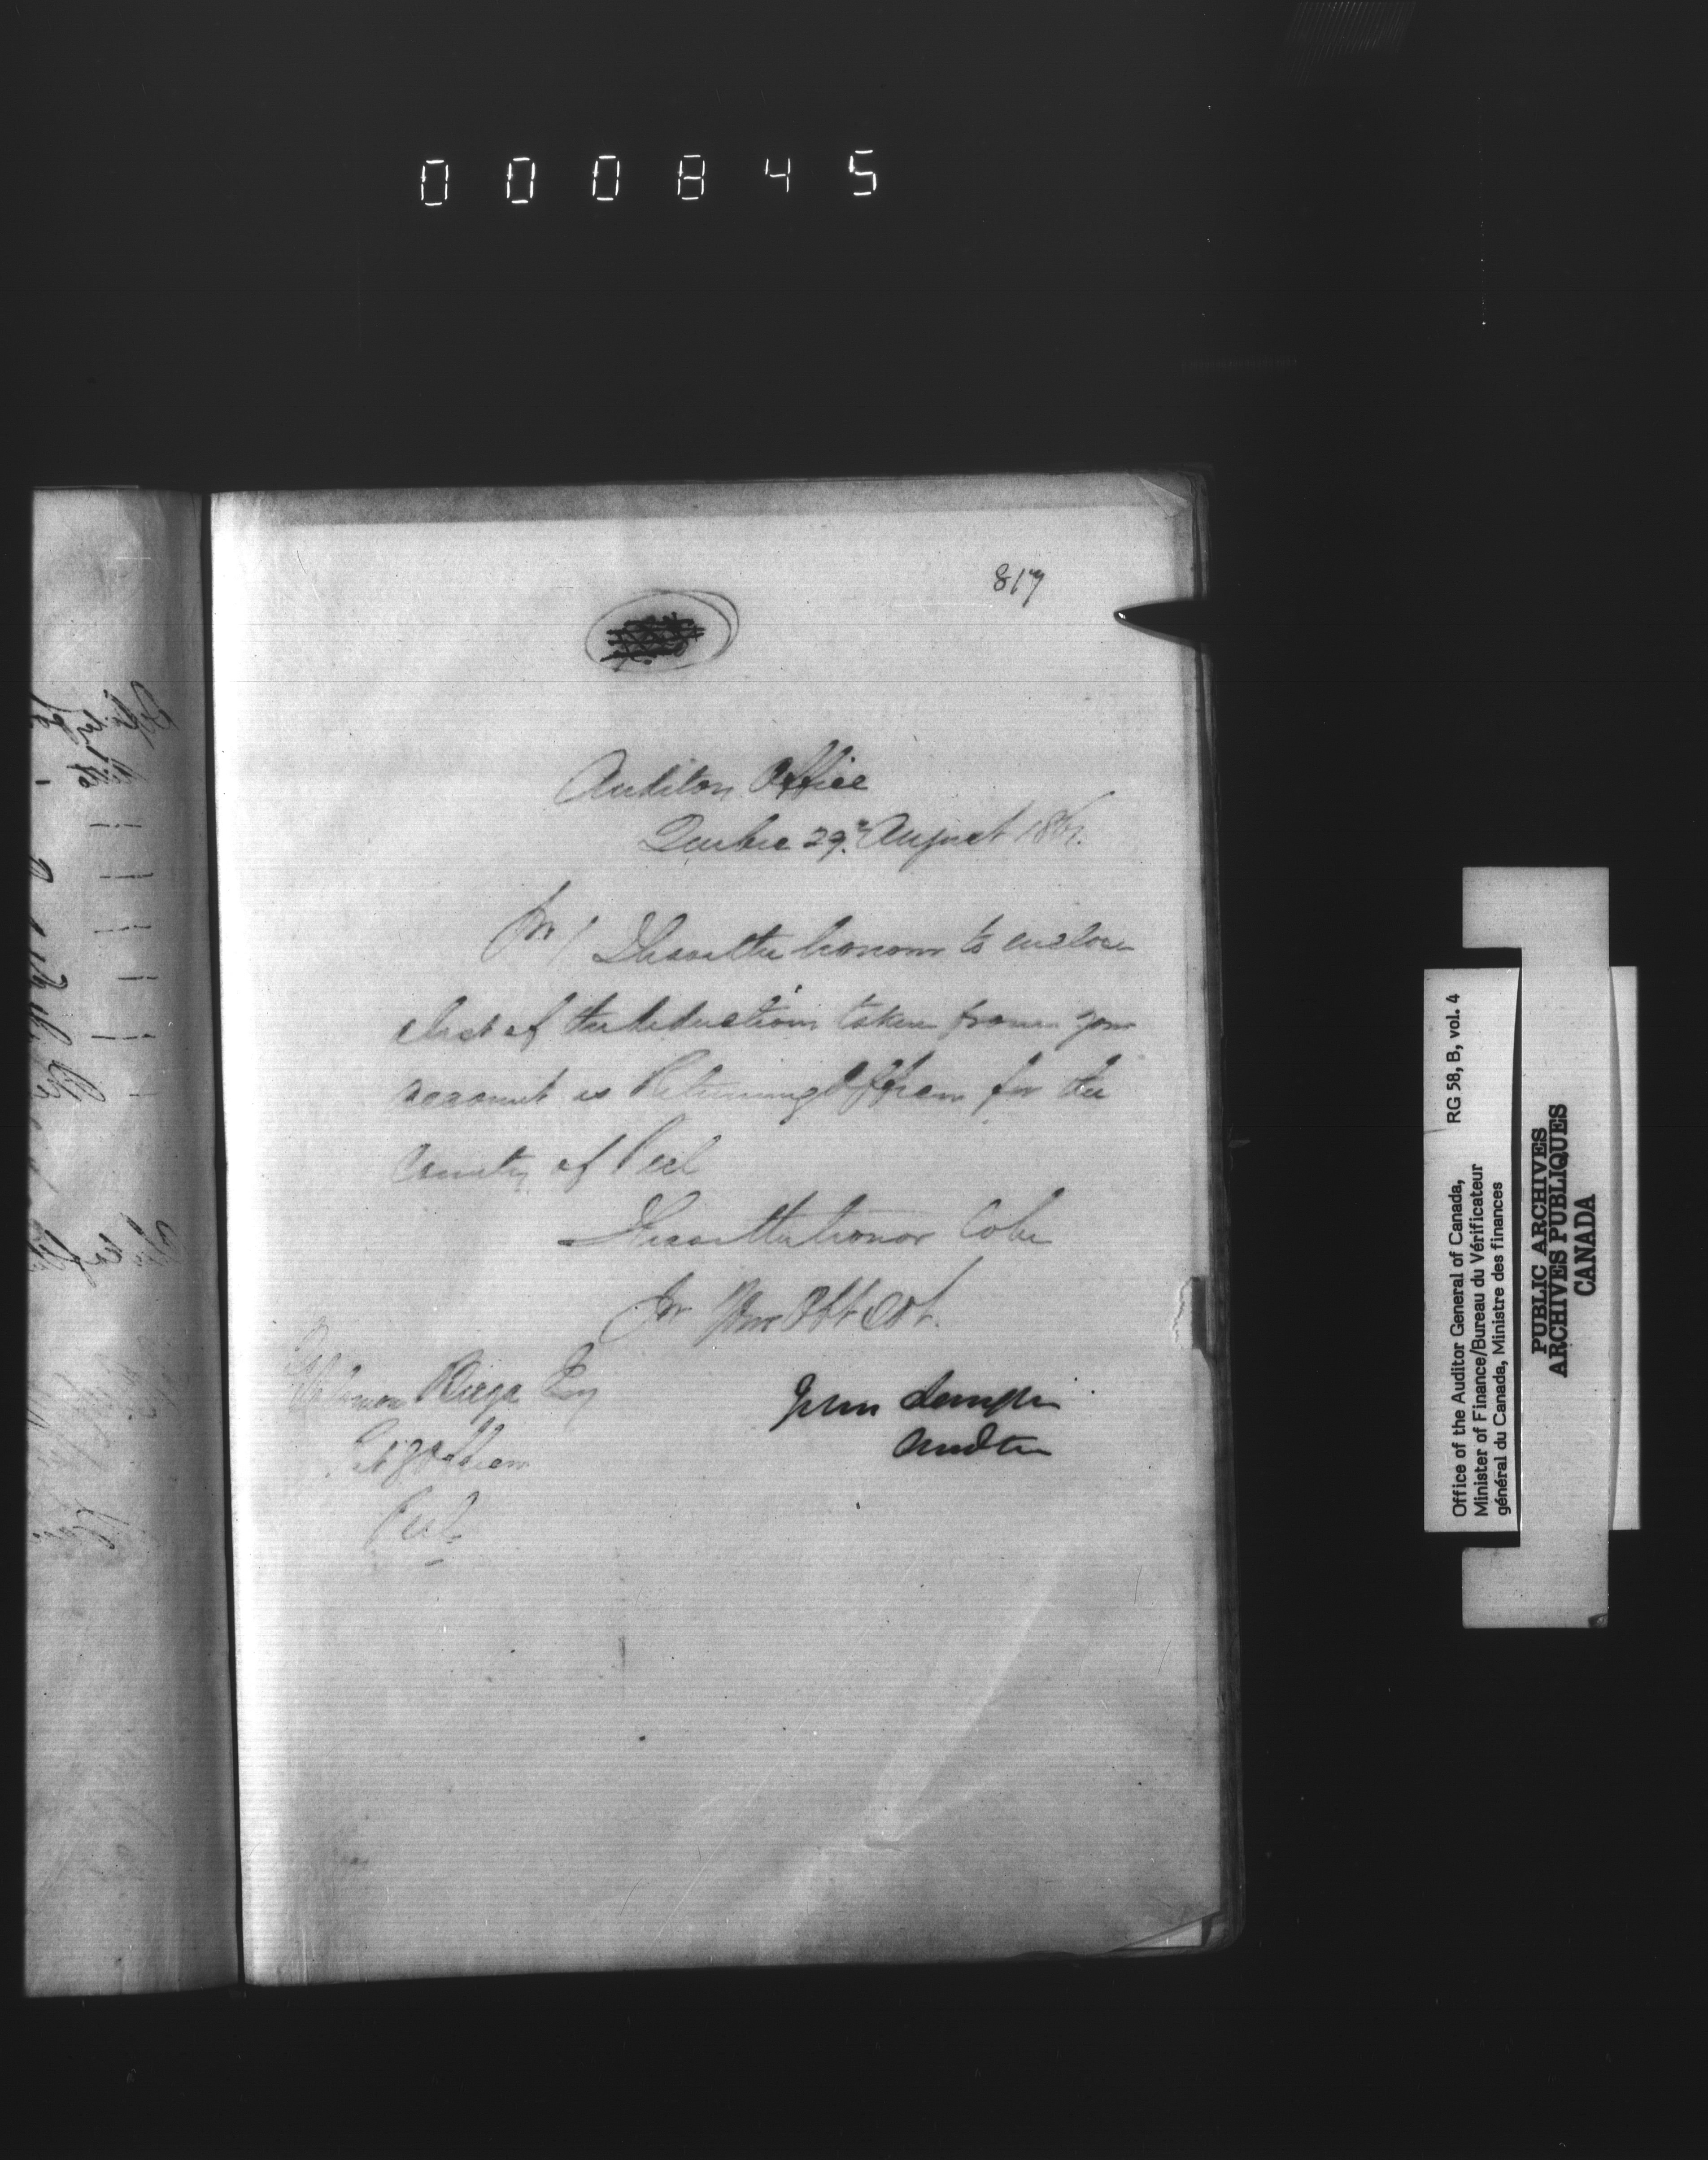 000845
817
Auditors Office
Quebec 29th August 186
Sir / I have the honour to enclose
a list of the deductions taken from your
account as Returning Officer for the
County of Peel
I have the honor to be
Sir Your Obt Svt.
John Langton
Auditor
Esq
Retg Officer
Peel
Office of the Auditor General of Canada, RG 58, B, vol. 4
Minister of Finance/Bureau du Vérificateur
général du Canada, Ministre des finances
PUBLIC ARCHIVES
ARCHIVES PUBLIQUES
CANADA